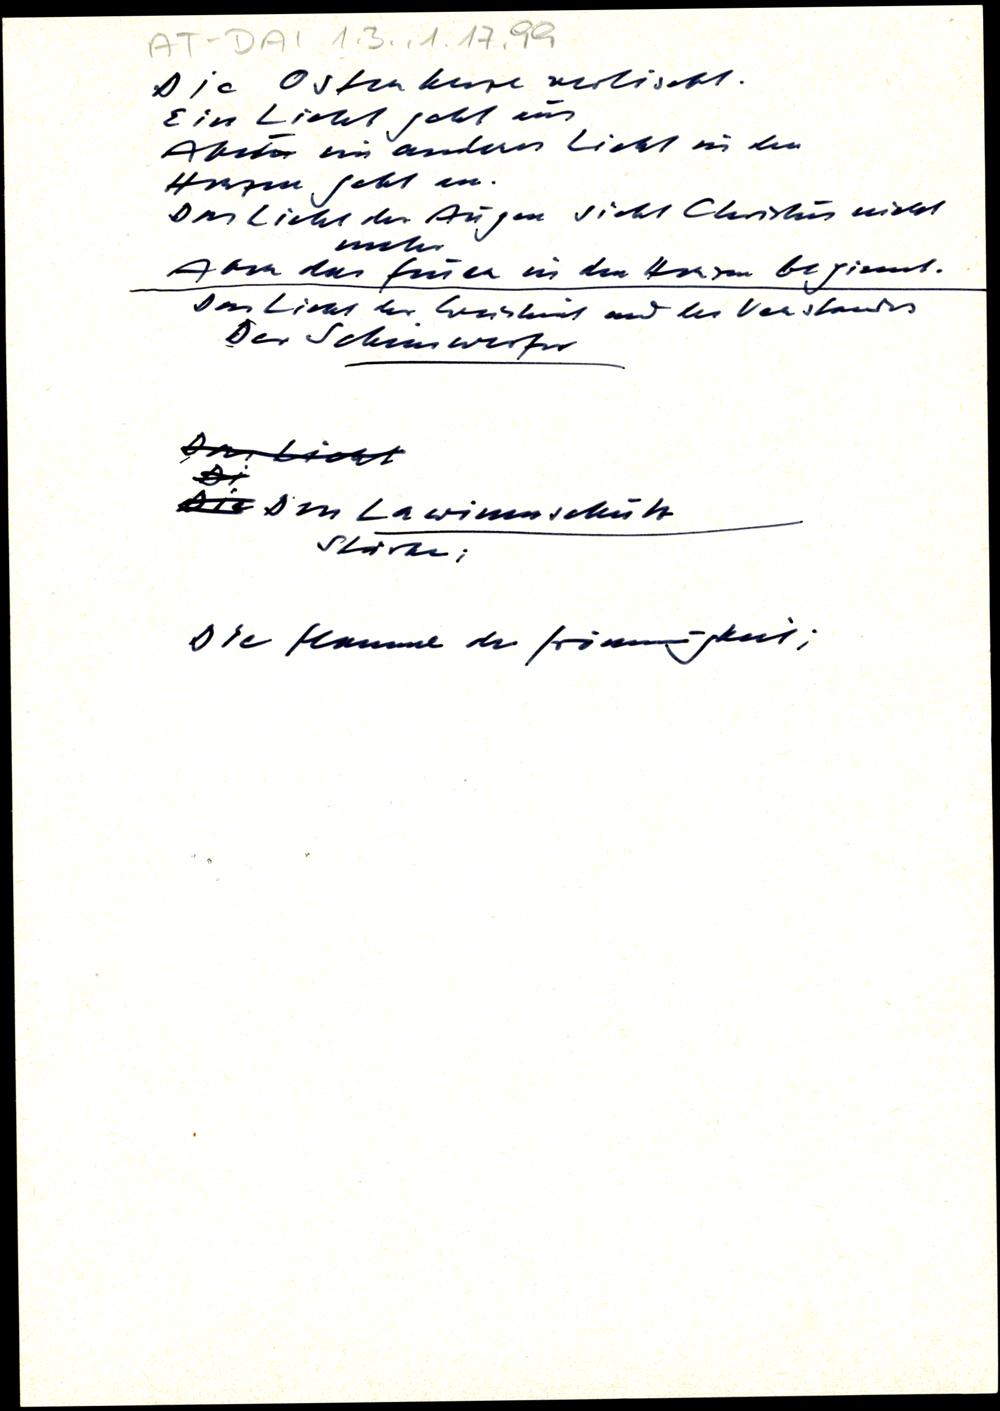 AT-DAI 1.3.1.17.99
Die Osterkerze verlischt.
Ein Licht geht aus
Aber ein anderes Licht in den
Herzen geht an.
Das Licht der Augen sieht Christus nicht
mehr
Aber das Feuer in den Herzen beginnt.
Das Licht der Weisheit und des Verstandes
Der Scheinwerfer
Das Licht
Di
Die Der Lawinenschutz
Stärke;
Die Flamme der Frömmigkeit;